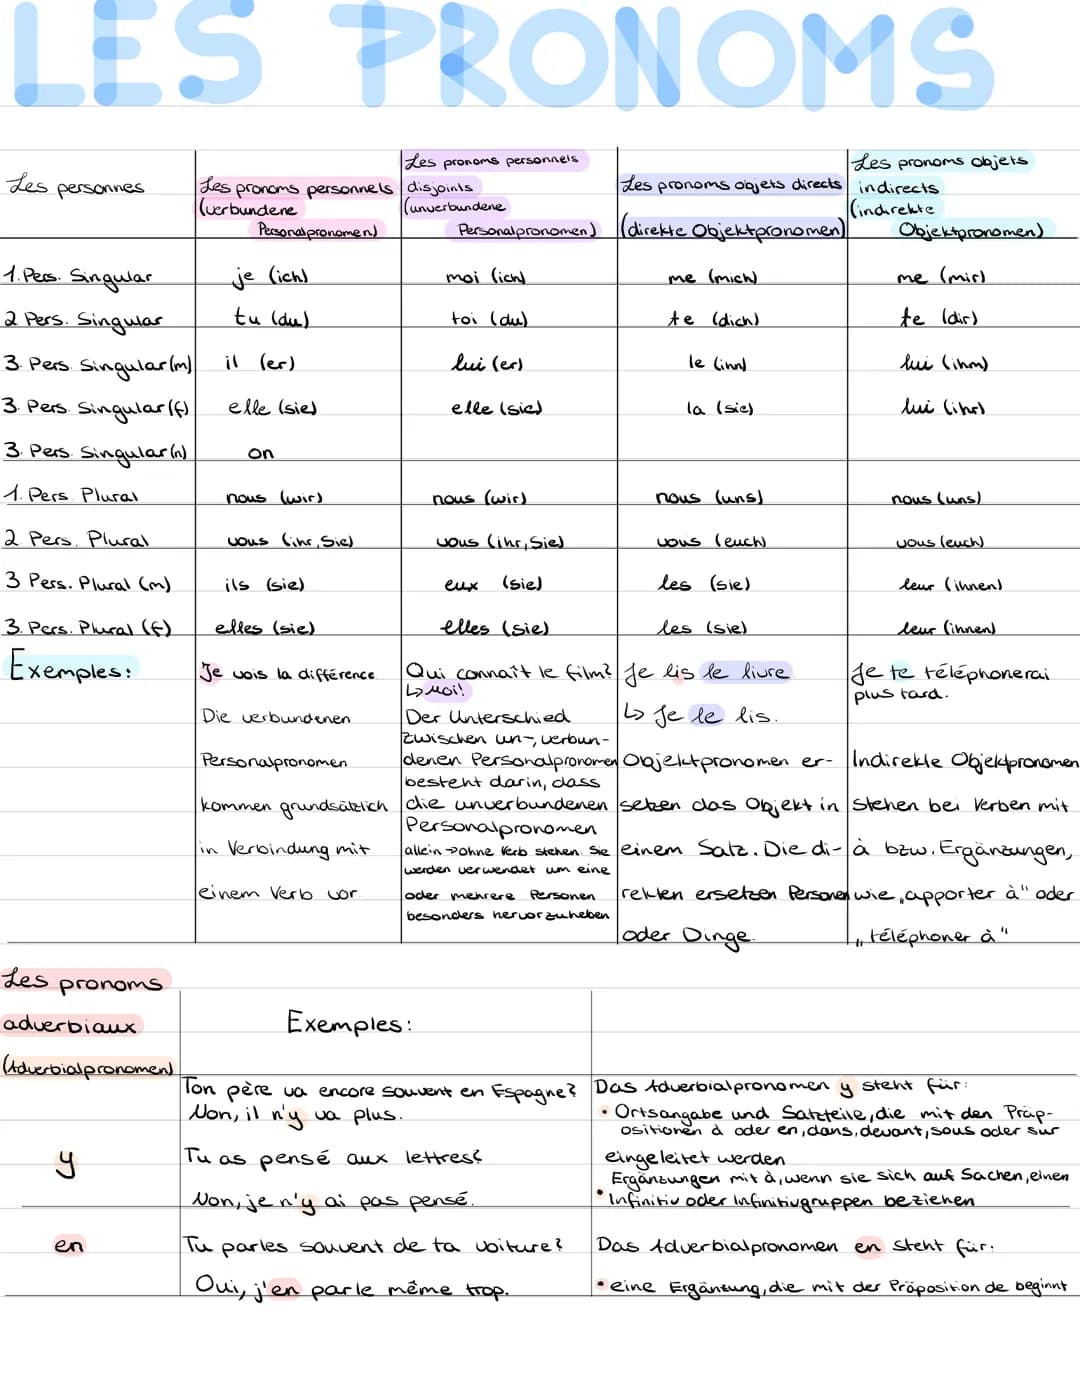 LES PRONOMS
Les personnes
Les pronoms personnels
(verbundene
Personalpronomen)
Les pronoms personnels
disjoints
(unverbundene
Personalpronomen)
Les pronoms objets directs
(direkte Objektpronomen)
Les pronoms objets
indirects
(indirekte
Objektpronomen)
1. Pers. Singular je (ich) moi (ich) me (mich) me (mir)
2 Pers. Singular tu (du) toi (du) te (dich) te (dir)
3. Pers. Singular (m) il (er) lui (er) le (ihn) lui (ihm)
3. Pers. Singular (f) elle (sie) elle (sie) la (sie) lui (ihr)
3. Pers. Singular (n) on
1. Pers. Plural nous (wir) nous (wir) nous (uns) nous (uns)
2 Pers. Plural vous (ihr, Sie) vous (ihr, Sie) vous (euch) vous (euch)
3 Pers. Plural (m) ils (sie) eux (sie) les (sie) leur (ihnen)
3. Pers. Plural (f) elles (sie) elles (sie) les (sie) leur (ihnen)
Exemples:
Je vois la différence
Die verbundenen
Personalpronomen
kommen grundsätzlich
in Verbindung mit
einem Verb vor.
Qui connaît le film?
↳ Moi!
Der Unterschied
zwischen un-, verbun-
denen Personalpronomen
besteht darin, dass
die unverbundenen
Personalpronomen
allein → ohne Verb stehen. Sie
werden verwendet um eine
oder mehrere Personen
besonders hervorzuheben
Je lis le livre
↳ Je le lis.
Objektpronomen er-
setzen das Objekt in
einem Satz. Die di-
rekten ersetzen Personen
oder Dinge.
Je te téléphonerai
plus tard.
Indirekte Objektpronomen
stehen bei Verben mit
à bzw. Ergänzungen,
wie „apporter à" oder
„téléphoner à"
Les pronoms
adverbiaux
(Adverbialpronomen)
Exemples:
y
Ton père va encore souvent en Espagne?
Non, il n'y va plus.
Tu as pensé aux lettres?
Non, je n'y ai pas pensé.
Das Adverbialpronomen y steht für:
• Ortsangabe und Satzteile, die mit den Präp-
ositionen à oder en, dans, devant, sous oder sur
eingeleitet werden
Ergänzungen mit à, wenn sie sich auf Sachen, einen
• Infinitiv oder Infinitivgruppen beziehen
en
Tu parles souvent de ta voiture?
Oui, j'en parle même trop.
Das Adverbialpronomen en steht für:
• eine Ergänzung, die mit der Präposition de beginnt